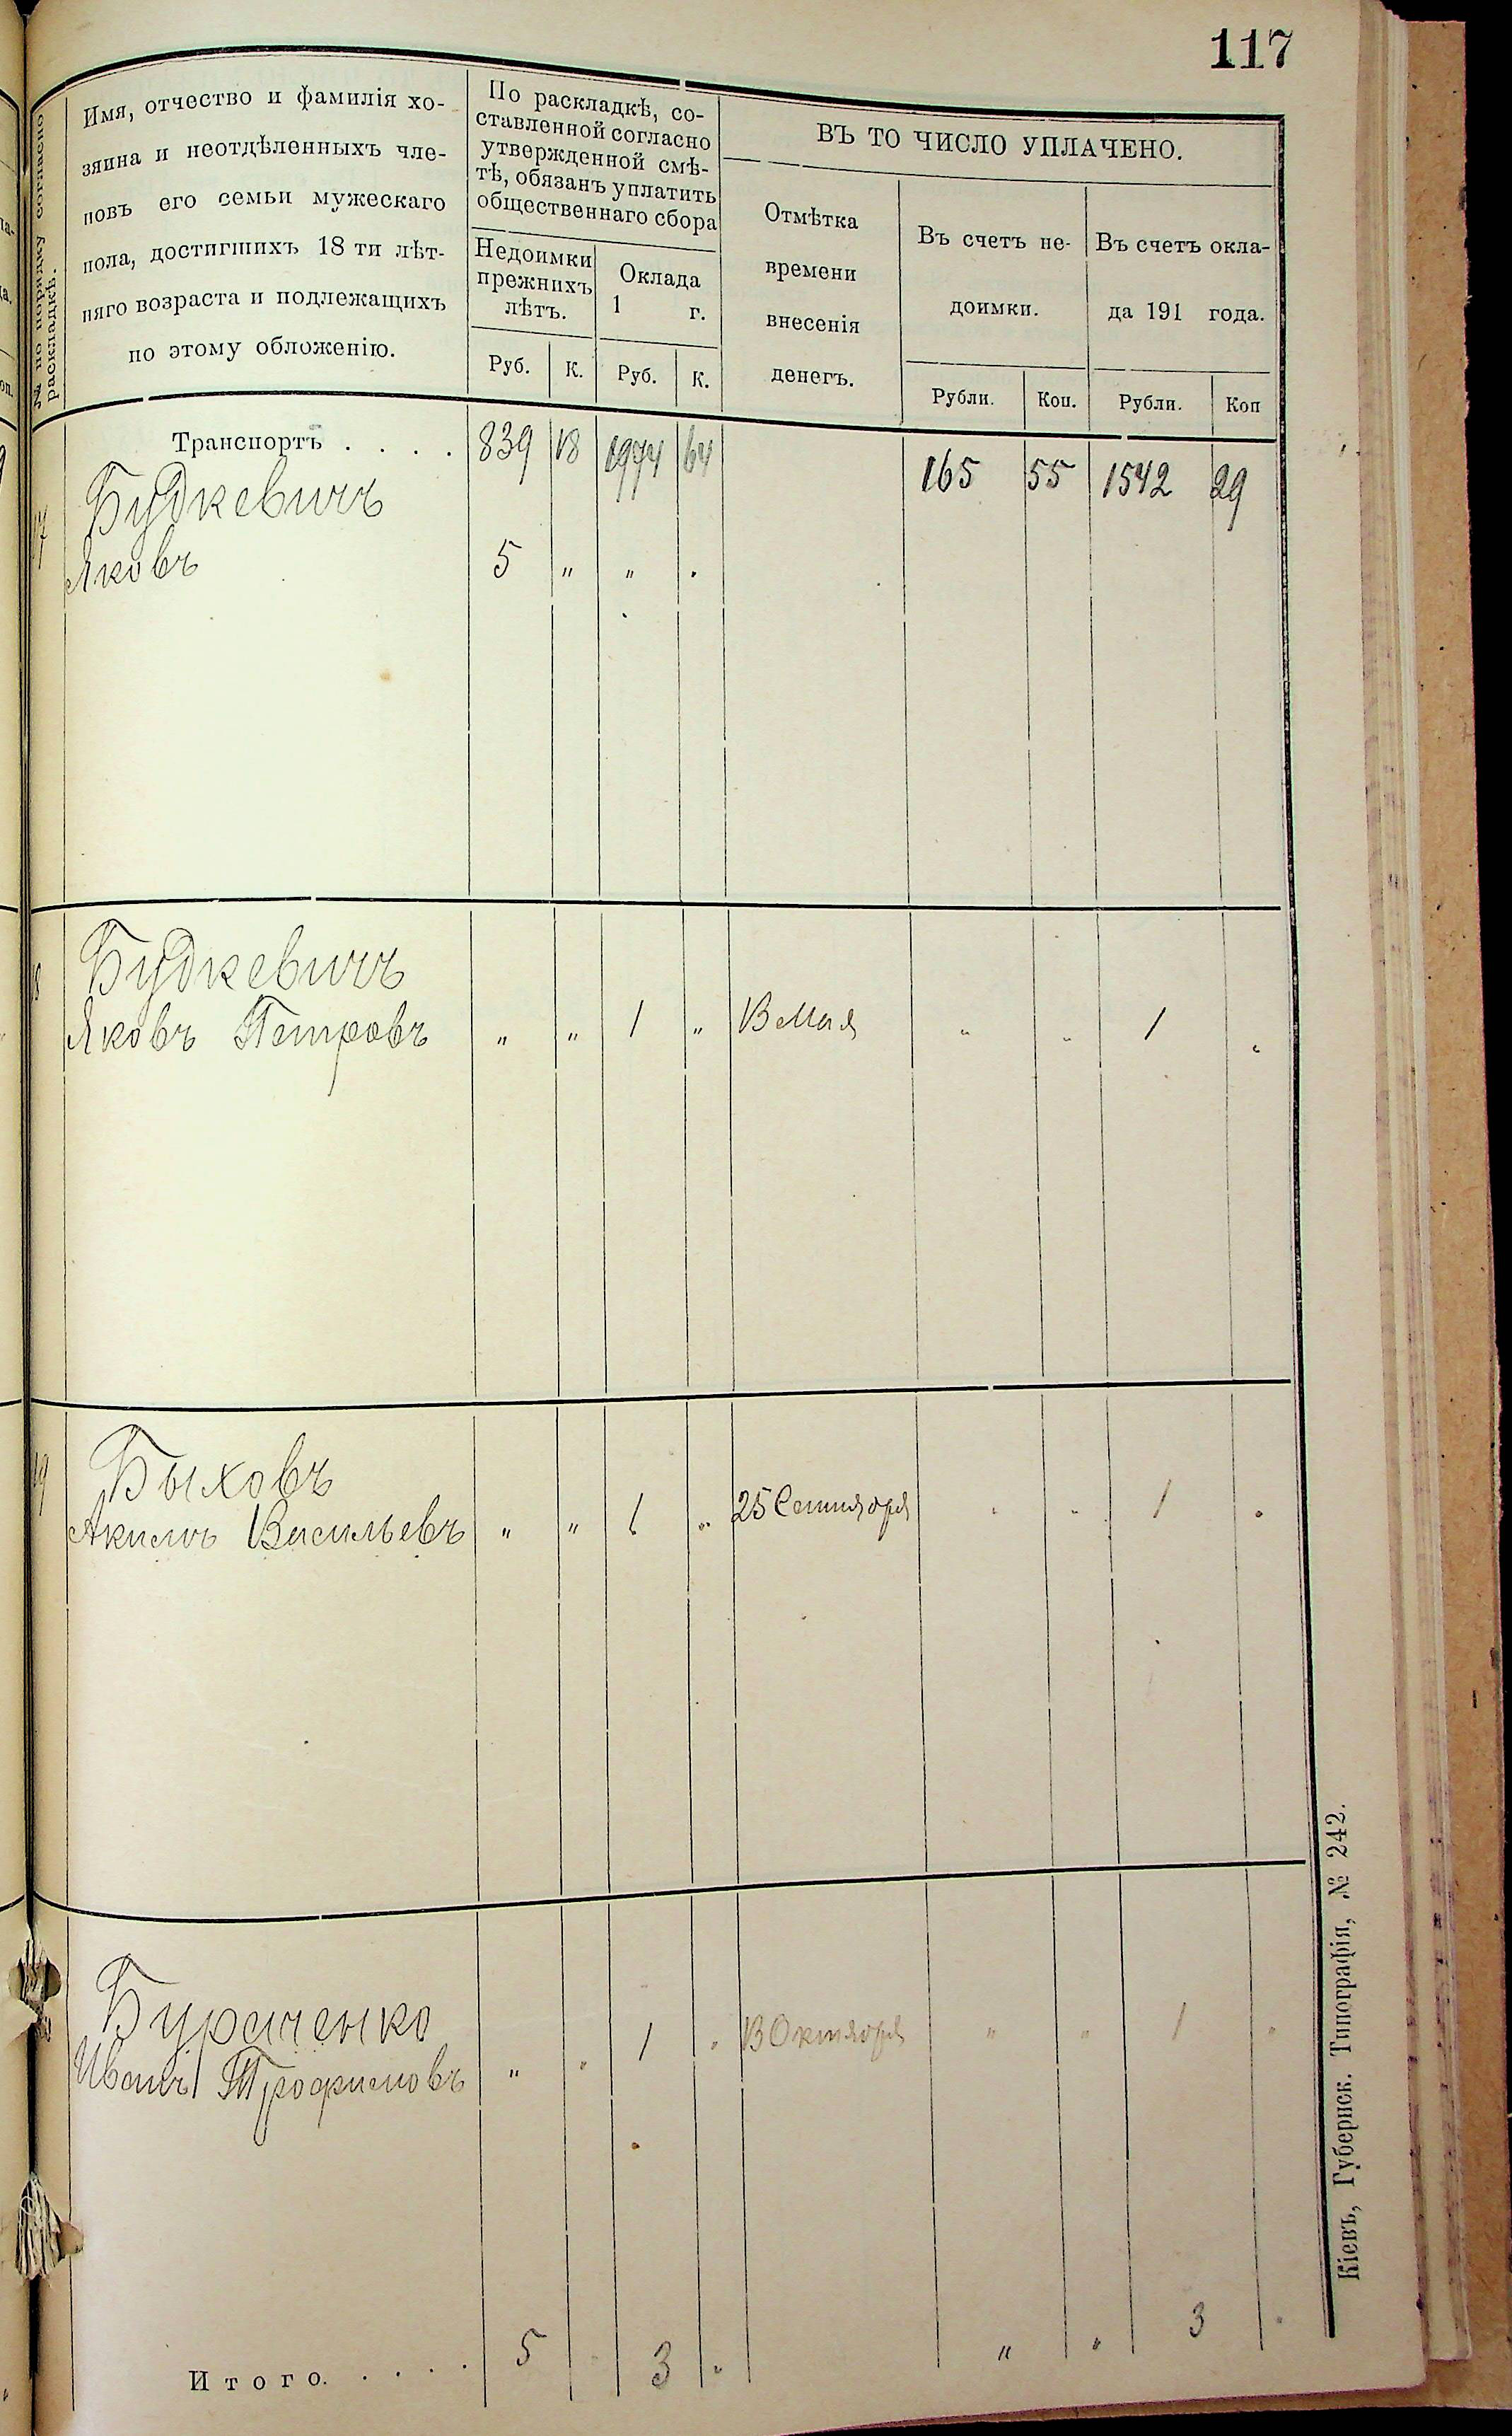 117
№ по порядку согласно
раскладкѣ.
Имя, отчество и фамилія хо-
зяина и неотдѣленныхъ чле-
новъ его семьи мужескаго
пола, достигшихъ 18 ти лѣт-
няго возраста и подлежащихъ
по этому обложенію.
По раскладкѣ, со-
ставленной согласно
утвержденной смѣ-
тѣ, обязанъ уплатить
общественнаго сбора
Недоимки
прежнихъ
лѣтъ.
Оклада
1 г.
Руб. К. Руб. К.
ВЪ ТО ЧИСЛО УПЛАЧЕНО.
Отмѣтка
времени
внесенія
денегъ.
Въ счетъ не-
доимки.
Въ счетъ окла-
да 191 года.
Рубли. Коп. Рубли. Коп
Транспортъ . . . . 839 18 1974 64 165 55 1542 29
7 Будкевичъ
Яковъ 5 „ „ .
8 Будкевичъ
Яковъ Петровъ „ „ 1 „ 13 Мая „ „ 1 „
9 Быховъ
Акимъ Васильевъ „ „ 1 „ 25 Сентября „ „ 1 „
Бураченко
Иванъ Трофимовъ „ „ 1 „ 13 Октября „ „ 1 „
Итого. . . . . 5 3 „ „ „ 3
Кіевъ, Губернск. Типографія, № 242.